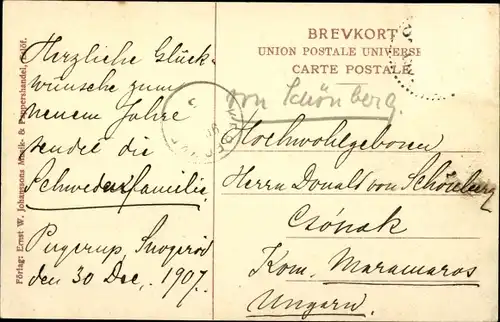 BREVKORT
UNION POSTALE UNIVERSE
CARTE POSTALE
Förlag: Ernst W. Johanssons Musik- & Pappershandel, Eslöf.
Herzliche Glück-
wünsche zum
neuem Jahre
sendet die
Schwedenfamilie.
Pugerup, Snogeröd
den 30 Dec. 1907.
von Schönberg.
Hochwohlgeboren
Herrn Donald von Schönberg
Csónak
Kom. Maramaros
Ungarn